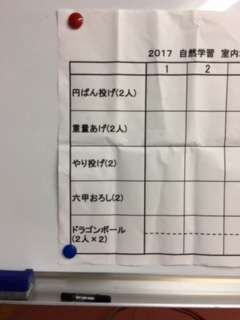 2017 自然学習 室内
1 2
円ばん投げ(2人)
重量あげ(2人)
やり投げ(2)
六甲おろし(2)
ドラゴンボール
(2人×2)